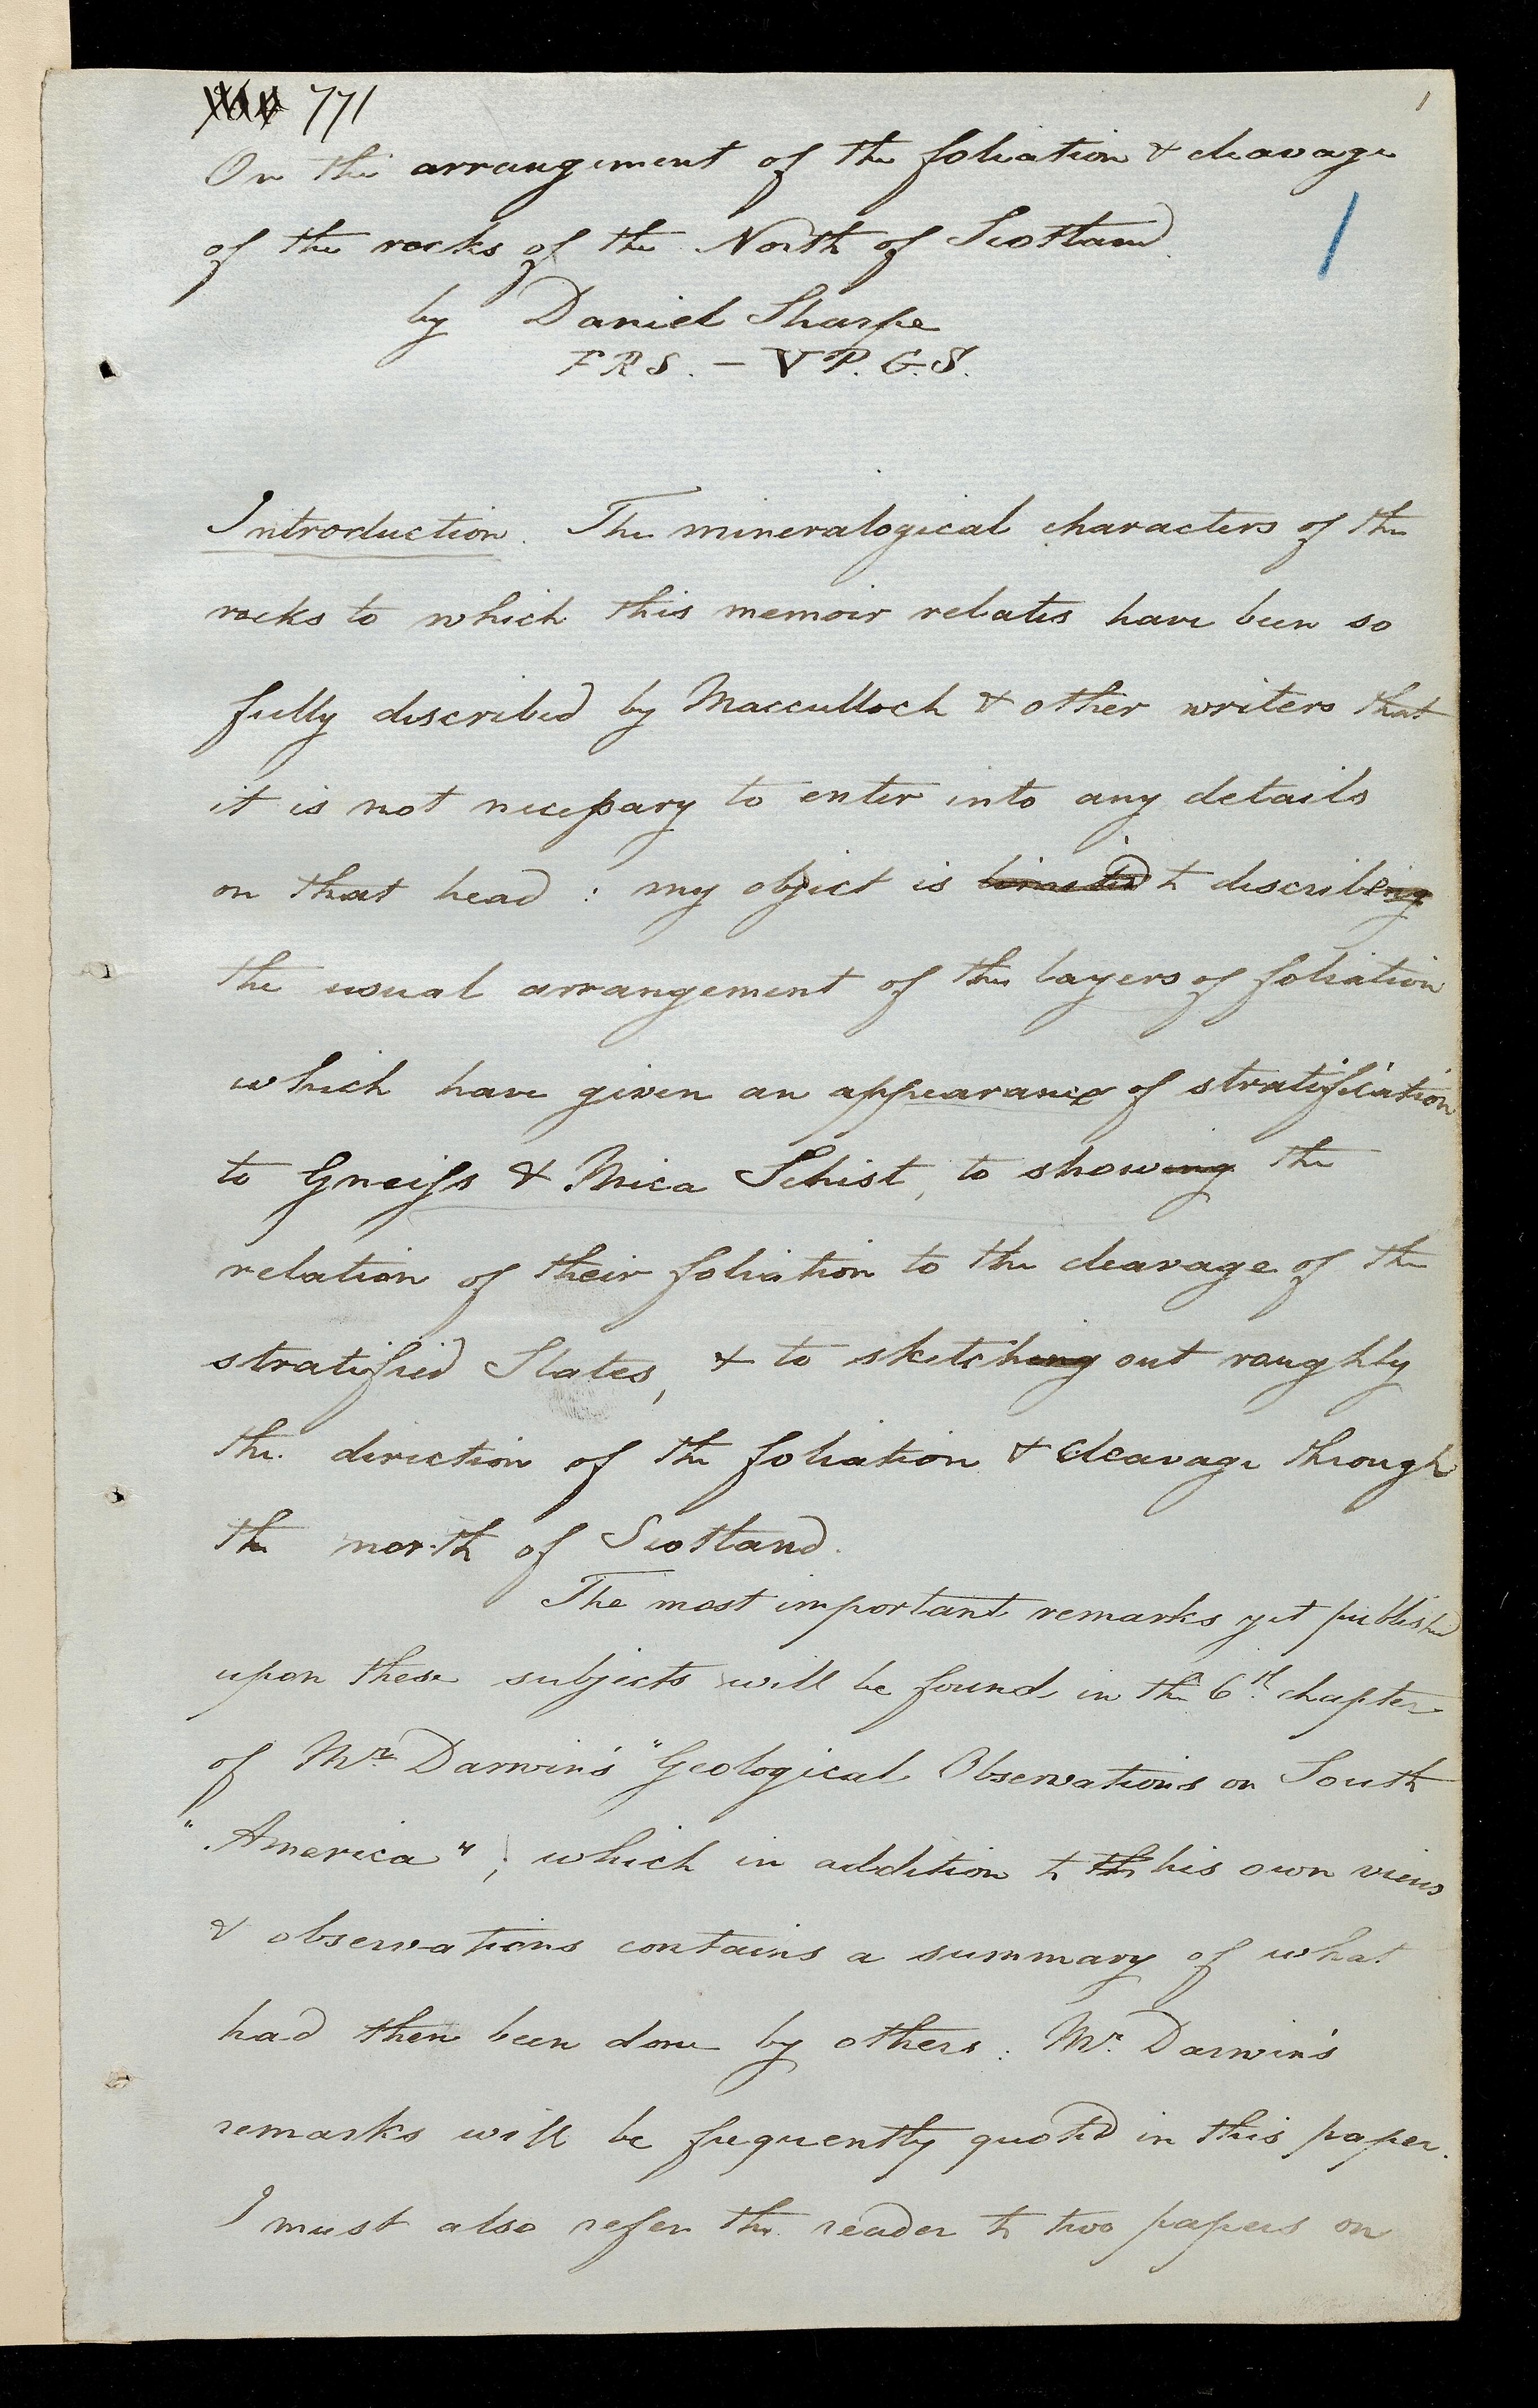 771
1
On the arrangement of the foliation & cleavage
of the rocks of the North of Scotland.
1
by Daniel Sharpe
F R S. – V P. G. S.
Introduction. The mineralogical characters of the
rocks to which this memoir relates have been so
fully described by Macculloch & other writers that
it is not necessary to enter into any details
on that head : my object is limited to describing
the usual arrangement of the layers of foliation
which have given an appearance of stratification
to Gneiss & Mica Schist, to showing the
relation of their foliation to the cleavage of the
stratified Slates, & to sketching out roughly
the direction of the foliation & cleavage through
the north of Scotland.
The most important remarks yet published
upon these subjects will be found in the 6th chapter
of Mr. Darwin's "Geological Observations on South
"America" ; which in addition to th his own views
& observations contains a summary of what
had then been done by others : Mr. Darwin's
remarks will be frequently quoted in this paper.
I must also refer the reader to two papers on